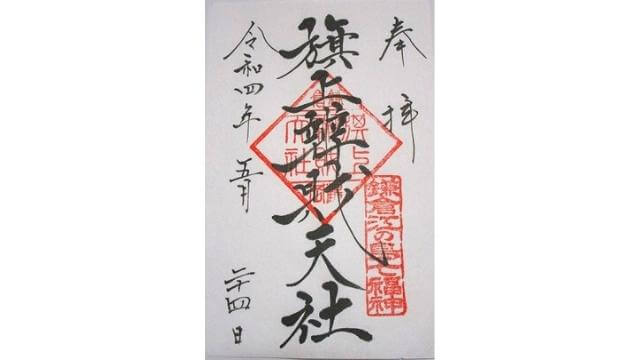 奉拝
旗上辨財天社
鎌倉江の島七福神
令和四年五月二十四日